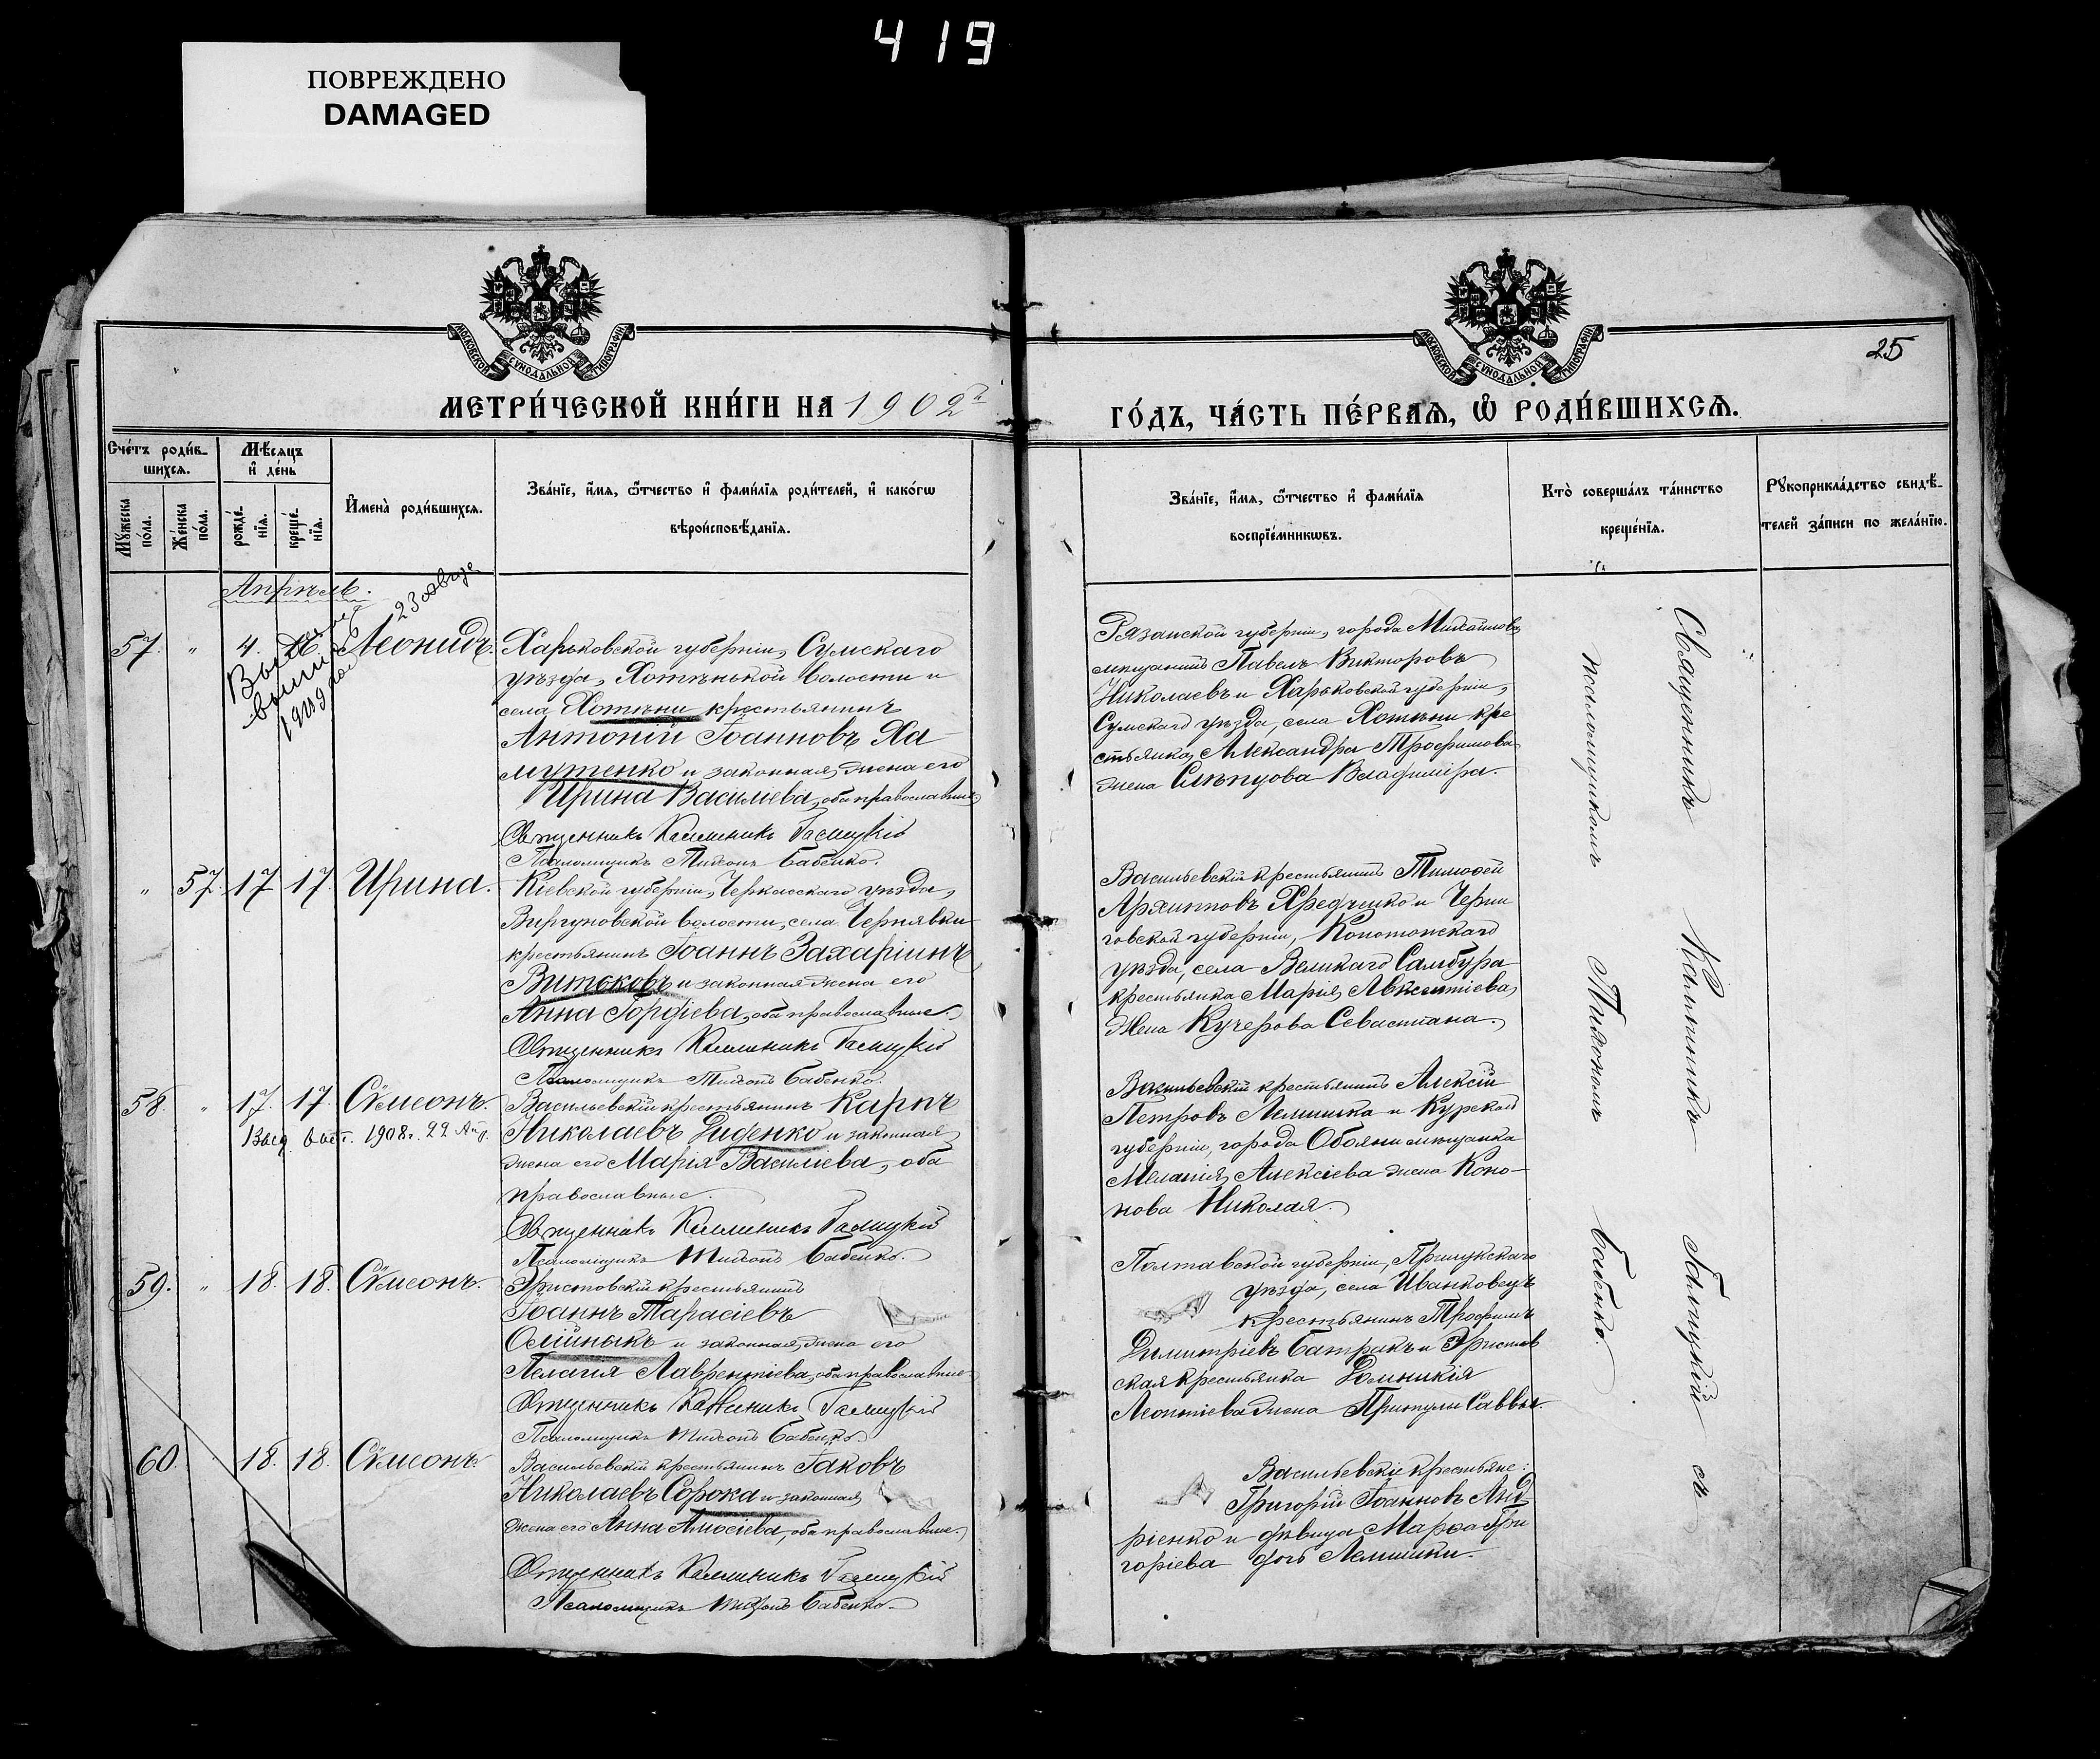 419
ПОВРЕЖДЕНО
DAMAGED
МОСКОВСКОЙ СУНОДАЛЬНОЙ ТИПОГРАФІИ
МОСКОВСКОЙ СУНОДАЛЬНОЙ ТИПОГРАФІИ
25
МЕТРИ́ЧЕСКОЙ КНИ́ГИ НА 1902й
ГО́ДЪ, ЧА́СТЬ ПЕ́РВАѦ, Ѽ РОДИ́ВШИХСѦ.
Сче́тъ роди́в-
шихсѧ.
Мѣ́сѧцъ
и҆ де́нь
Мꙋ́жеска по́ла.
Же́нска по́ла.
рожде́нїѧ.
креще́нїѧ.
И҆мена̀ роди́вшихсѧ.
Зва́нїе, и҆́мѧ, ѻ҆́тчество и҆ фами́лїѧ роди́телей, и҆ како́гѡ
вѣроисповѣ́данїѧ.
Зва́нїе, и҆́мѧ, ѻ҆́тчество и҆ фами́лїѧ
воспрїе́мникѡвъ.
Кто̀ соверша́лъ та́инство
креще́нїѧ.
Рꙋкоприкла́дство свидѣ́-
телей за́писи по жела́нїю.
Апрѣль.
57. " 4. Леонидъ.
Харьковской губерніи, Сумскаго
уѣзда, Хотѣнькой волости и
села Хотѣни крестьянинъ
Антоній Іоанновъ Ха
мутенко и законная жена его
Ирина Василіева, оба православные
Священникъ Каллиникъ Галицкій
Псаломщикъ Тихонъ Бабенко.
Рязанской губерніи, города Михайлова
мѣщанинъ Павелъ Викторовъ
Николаевъ и Харьковской губерніи,
Сумскаго уѣзда, села Хотѣни кре
стьянка Александра Трофимова
жена Слѣпцова Владиміра.
" 57. 17 17. Ирина.
Кіевской губерніи, Черкасскаго уѣзда,
Виргуновской волости, села Чернявки
крестьянинъ Іоаннъ Захаріинъ
Витьковъ и законная жена его
Анна Гордіева, оба православные.
Священникъ Каллиникъ Галицкій
Псаломщикъ Тихонъ Бабенко.
Васильевскій крестьянинъ Тимофей
Архиповъ Хредченко и Черни
говской губерніи, Конотопскаго
уѣзда, села Великаго Самбура
крестьянка Марія Авксентіева
жена Кучерова Севастіана.
58. " 17. 17. Сѵмеонъ.
1908г. 22
Васильевскій крестьянинъ Карпъ
Николаевъ Диденко и законная
жена его Марія Василіева, оба
православные.
Священникъ Каллиникъ Галицкій
Псаломщикъ Тихонъ Бабенко.
Васильевскій крестьянинъ Алексій
Петровъ Лемишка и Курской
губерніи, города Обояни мѣщанка
Меланія Алексіева жена Коно-
нова Николая.
59. " 18. 18. Сѵмеонъ.
крестьянинъ
Іоаннъ Тарасіевъ
Олійныкъ и законная жена его
Пелагія Лаврентіева, оба православные
Священникъ Каллиникъ Галицкій
Псаломщикъ Тихонъ Бабенко
Полтавской губерніи, Прилукскаго
уѣзда, села Иванковецъ
крестьянинъ Трофимъ
Димитріевъ Батракъ и
ская крестьянка Домникія
Леонтіева жена Притулы Саввы.
60. 18. 18. Сѵмеонъ.
Васильевскій крестьянинъ Іаковъ
Николаевъ Сорока и законная
жена его Анна Амосіева, оба православные.
Священникъ Каллиникъ Галицкій
Псаломщикъ Тихонъ Бабенко.
Васильевскіе крестьяне:
Григорій Іоанновъ Анд
ріенко и дѣвица Марѳа Гри
горіева дочь Лемишки.
Священникъ Каллиникъ Галицкій съ
псаломщикомъ Тихономъ Бабенко.